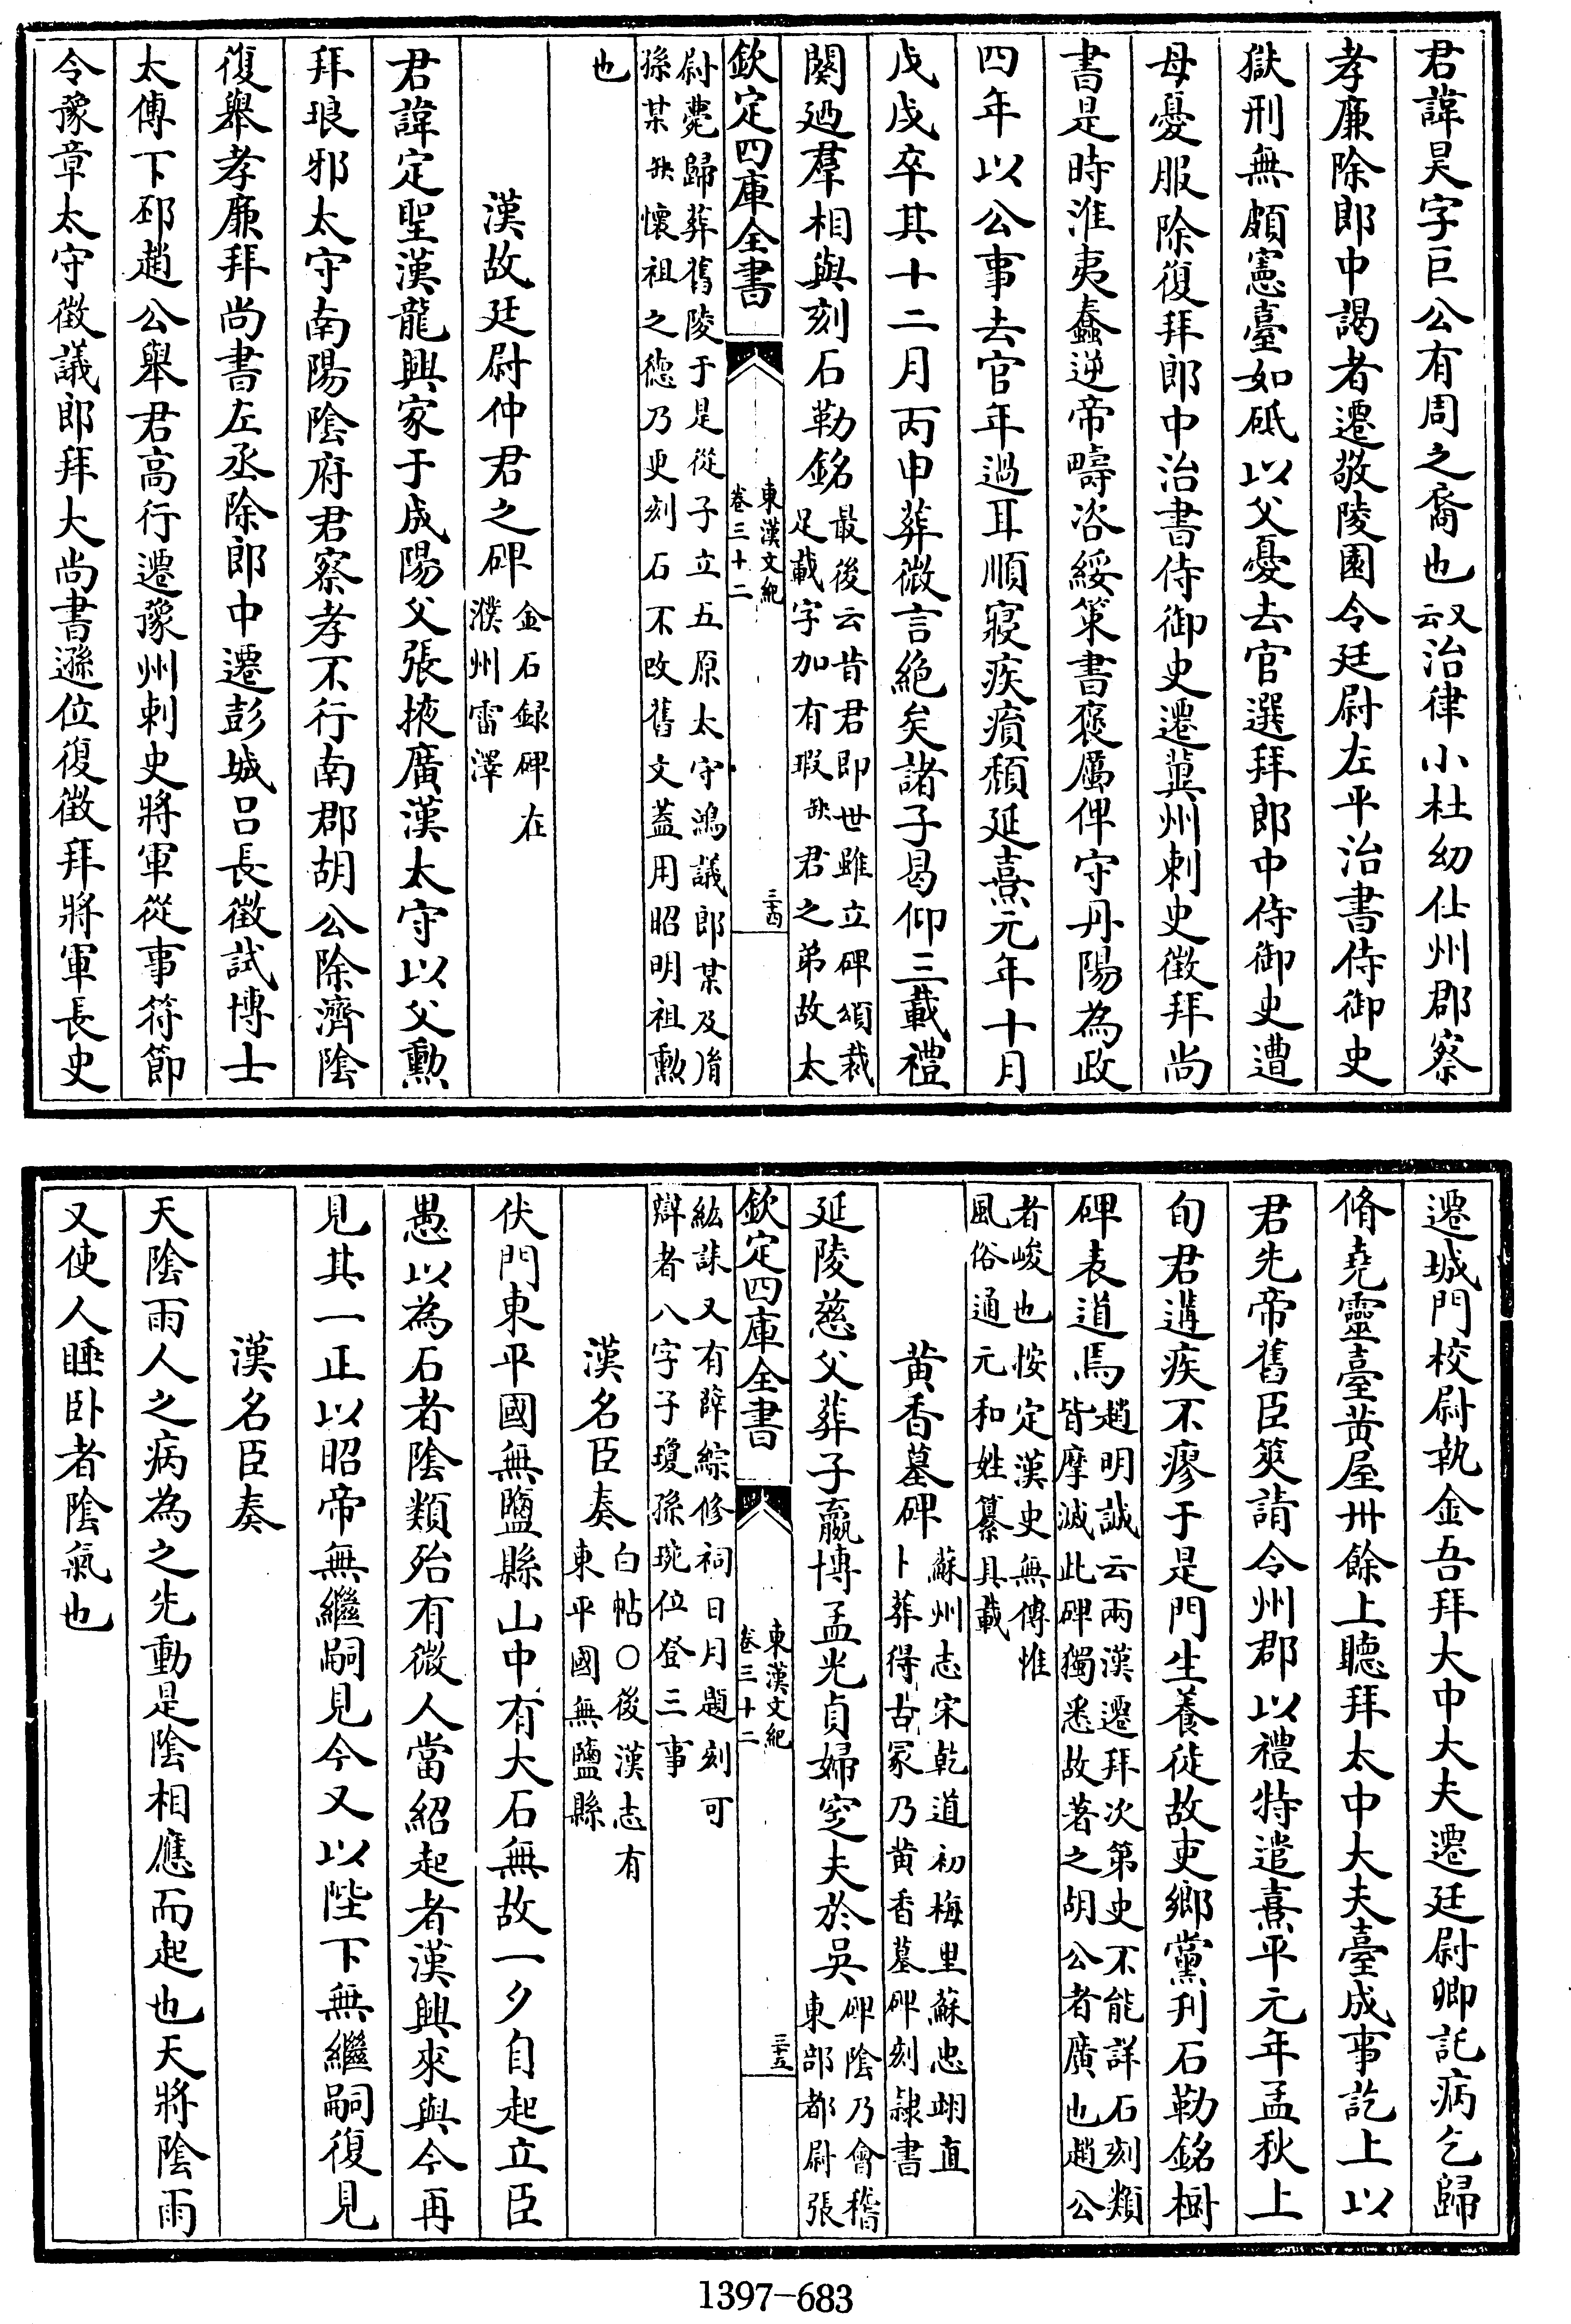 君諱昊字巨公有周之裔也又云治律小杜幼仕州郡察
孝廉除郎中謁者遷敬陵園令廷尉左平治書侍御史
獄刑無頗憲臺如砥以父憂去官選拜郎中侍御史遭
母憂服除復拜郎中治書侍御史遷冀州刺史徵拜尚
書是時淮夷蠢逆帝疇咨綏策書褒厲俾守丹陽為政
四年以公事去官年過耳順寢疾瘨頹延熹元年十月
戊戌卒其十二月丙申葬微言絶矣諸子曷仰三載禮
闋廼羣相與刻石勒銘最後云昔君即世雖立碑頌裁
足載字加有瑕缺君之弟故太
欽定四庫全書
東漢文紀
卷三十二
三十四
尉薨歸葬舊陵于是從子立五原太守鴻議郎某及㣧
孫某缺懷祖之德乃更刻石不改舊文蓋用昭明祖勲
也
漢故廷尉仲君之碑金石録碑在
濮州雷澤
君諱定聖漢龍興家于成陽父張掖廣漢太守以父勲
拜琅邪太守南陽陰府君察孝不行南郡胡公除濟陰
復舉孝廉拜尚書左丞除郎中遷彭城吕長徵試博士
太傅下邳趙公舉君高行遷豫州刺史將軍從事符節
令豫章太守徵議郎拜大尚書遜位復徵拜將軍長史
遷城門校尉執金吾拜大中大夫遷廷尉卿託病乞歸
脩堯靈臺黄屋卅餘上聽拜太中大夫臺成事訖上以
君先帝舊臣筴請令州郡以禮特遣熹平元年孟秋上
旬君遘疾不瘳于是門生養徒故吏鄉黨刋石勒銘樹
碑表道焉趙明誠云兩漢遷拜次第史不能詳石刻類
皆摩滅此碑獨悉故著之胡公者廣也趙公
者峻也按定漢史無傳惟
風俗通元和姓纂具載
黄香墓碑蘇州志宋乾道初梅里蘇忠翊直
卜葬得古冢乃黄香墓碑刻隸書
延陵慈父葬子嬴博孟光貞婦窆夫於吳碑陰乃會稽
東部都尉張
欽定四庫全書
東漢文紀
卷三十二
三十五
紘誄又有薛綜修祠日月題刻可
辯者八字子瓊孫琬位登三事
漢名臣奏白帖○後漢志有
東平國無鹽縣
伏門東平國無鹽縣山中有大石無故一夕自起立臣
愚以為石者陰類殆有微人當紹起者漢興來與今再
見其一正以昭帝無繼嗣見今又以陛下無繼嗣復見
漢名臣奏
天陰雨人之病為之先動是陰相應而起也天將陰雨
又使人睡卧者陰氣也
1397-683